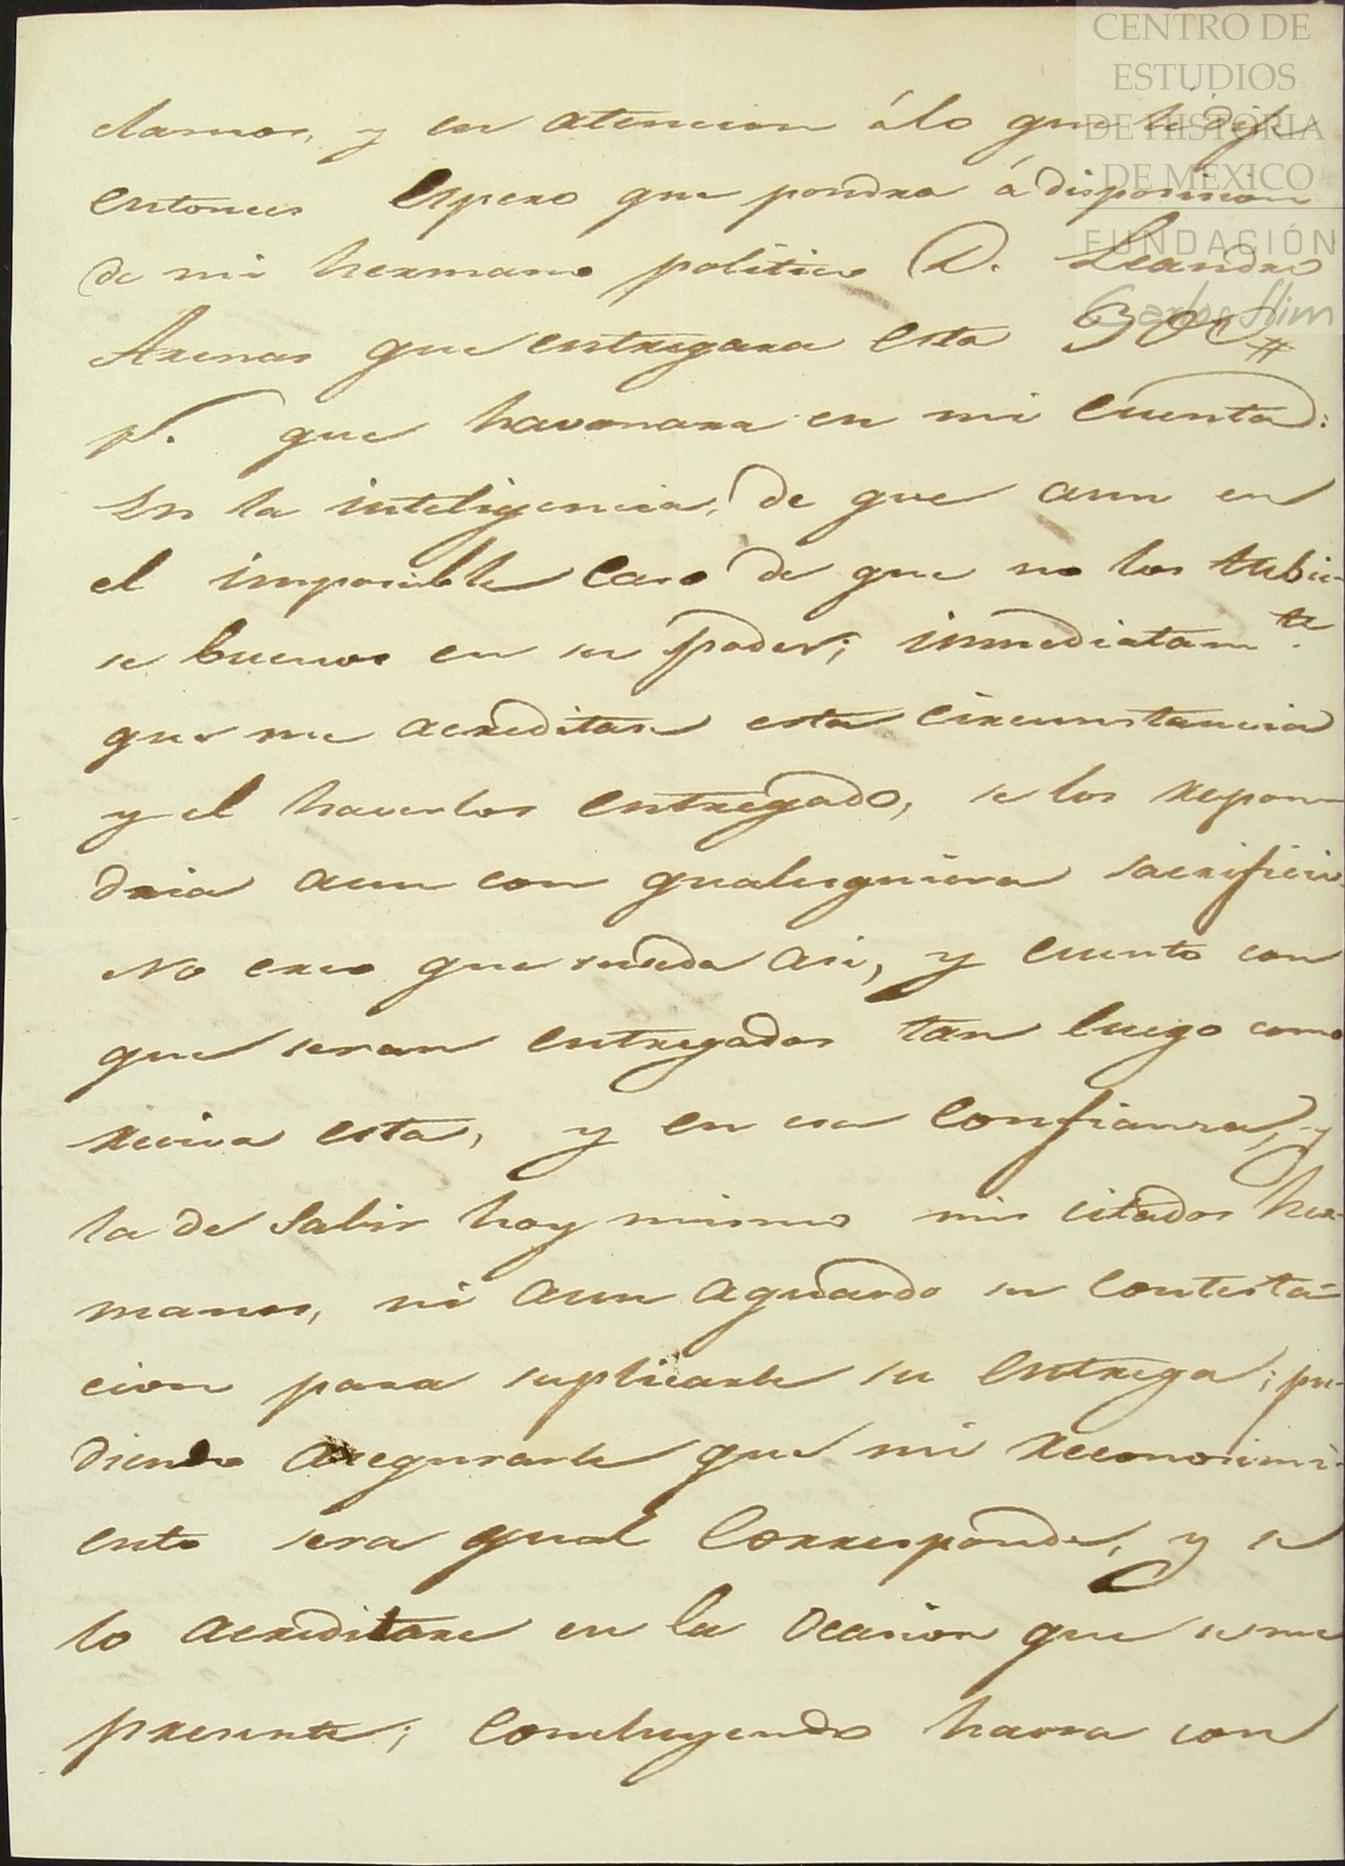 CENTRO DE
ESTUDIOS
DE HISTORIA
DE MÉXICO
FUNDACIÓN
Carlos Slim
damos, y en atencion álo que le dije
entonces Espero que pondra á disposicion
de mi hermano politico D. Leandro
Arenas que entregara esta 300#
p.s que havonara en mi cuenta:
En la inteligencia, de que aun en
el imposible Caso de que no los tubie-
se buenos en su poder; inmediatam.te
que me acreditase esta circunstancia
y el haverlos entregado, se los repon
dria aun con qualesquiera sacrificio.
No creo que suceda asi, y cuento con
que seran entregados tan luego como
reciva esta, y en esa Confianza, y
la de Salir hoy mismo mis citados her-
manos, ni aun aguardo su contesta-
cion para suplicarle su entrega; pu-
diendo asegurarle que mi reconosimi-
ento sera qual Corresponde, y se
lo acreditare en la ocasion que se me
presente; Concluyendo haora con